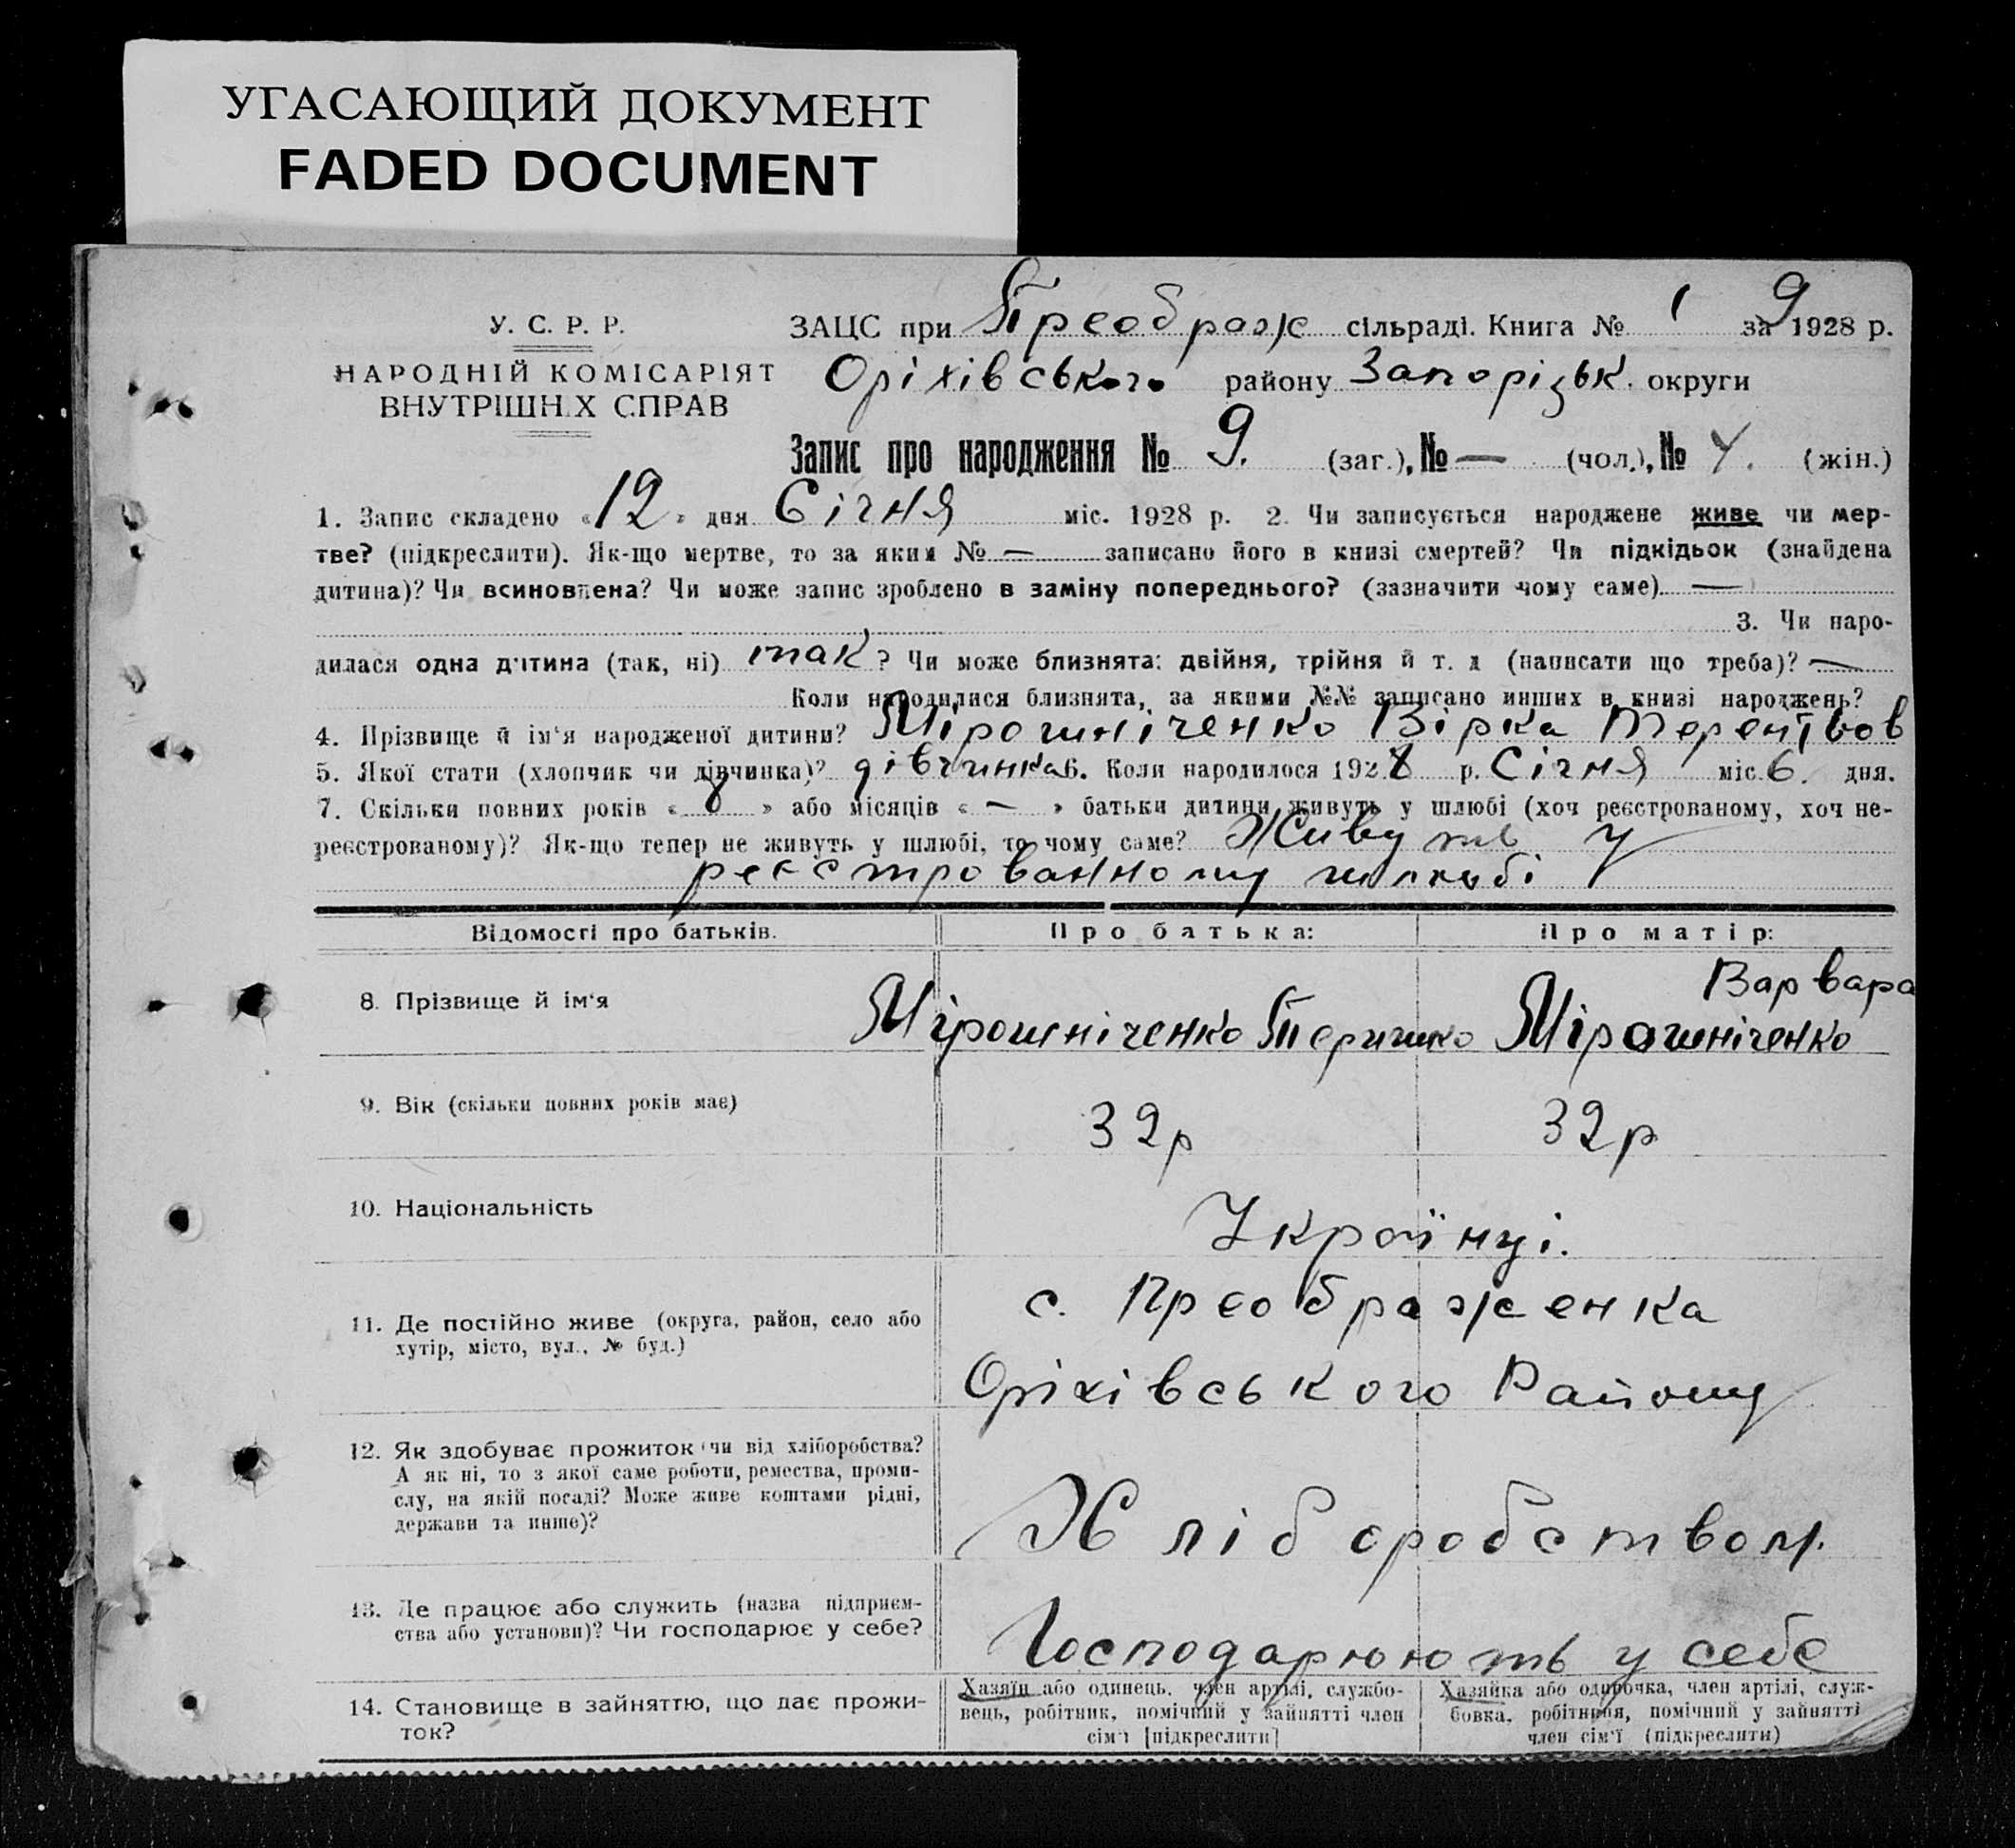 УГАСАЮЩИЙ ДОКУМЕНТ
FADED DOCUMENT
У. С. Р. Р.
НАРОДНІЙ КОМІСАРІЯТ
ВНУТРІШНІХ СПРАВ
9
ЗАЦС при Преображ сільраді. Книга № 1 за 1928 р.
Оріхівського району Запорізьк. округи
Запис про народження № 9. (заг.), № — (чол.), № 4. (жін.)
1. Запис складено «12» дня Січня міс. 1928 р. 2. Чи записується народжене живе чи мер-
тве? (підкреслити). Як-що мертве, то за яким № — записано його в книзі смертей? Чи підкідьок (знайдена
дитина)? Чи всиновлена? Чи може запис зроблено в заміну попереднього? (зазначити чому саме) —
3. Чи наро-
дилася одна дитина (так, ні) так? Чи може близнята: двійня, трійня й т. д (написати що треба)? —
Коли народилися близнята, за якими №№ записано инших в книзі народжень?
4. Прізвище й ім'я народженої дитини? Мірошніченко Вірка Терентьов
5. Якої стати (хлопчик чи дівчинка)? дівчинка 6. Коли народилося 1928 р. Січня міс. 6. дня.
7. Скільки повних років «8» або місяців «—» батьки дитини живуть у шлюбі (хоч реєстрованому, хоч не-
реєстрованому)? Як-що тепер не живуть у шлюбі, то чому саме? Живуть у
реєстрованному шлюбі
Відомості про батьків. Про батька: Про матір:
Варвара
8. Прізвище й ім'я Мірошніченко Теришко Мірошніченко
9. Вік (скільки повних років має) 32р 32р
10. Національність Українці.
с. Преображенка
11. Де постійно живе (округа, район, село або
хутір, місто, вул., № буд.)
Оріхівського Району
12. Як здобуває прожиток (чи від хліборобства?
А як ні, то з якої саме роботи, ремества, проми-
слу, на якій посаді? Може живе коштами рідні,
держави та инше)?
Хліборобством.
13. Де працює або служить (назва підприєм-
ства або установи)? Чи господарює у себе?
Господарюють у себе
14. Становище в зайняттю, що дає прожи-
ток?
Хазяїн або одинець, член артілі, службо-
вець, робітник, помічний у зайнятті член
сім'ї [підкреслити]
Хазяйка або одиночка, член артілі, служ-
бовка, робітниця, помічний у зайнятті
член сім'ї (підкреслити)